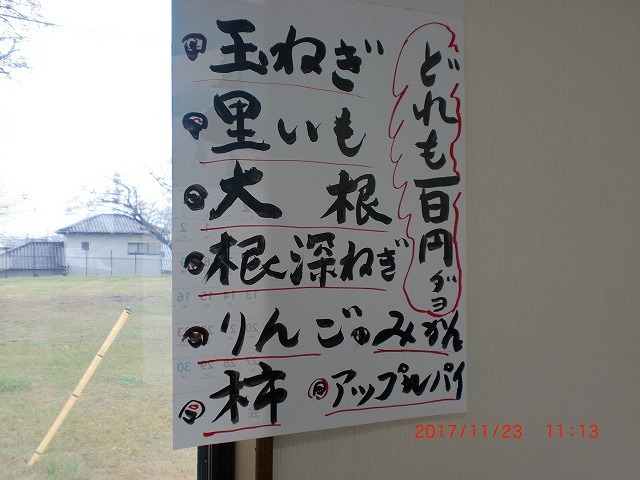 どれも一百円ダヨ
玉ねぎ
里いも
大 根
根深ねぎ
りんご みかん
柿 アップルパイ
2017/11/23 11:13